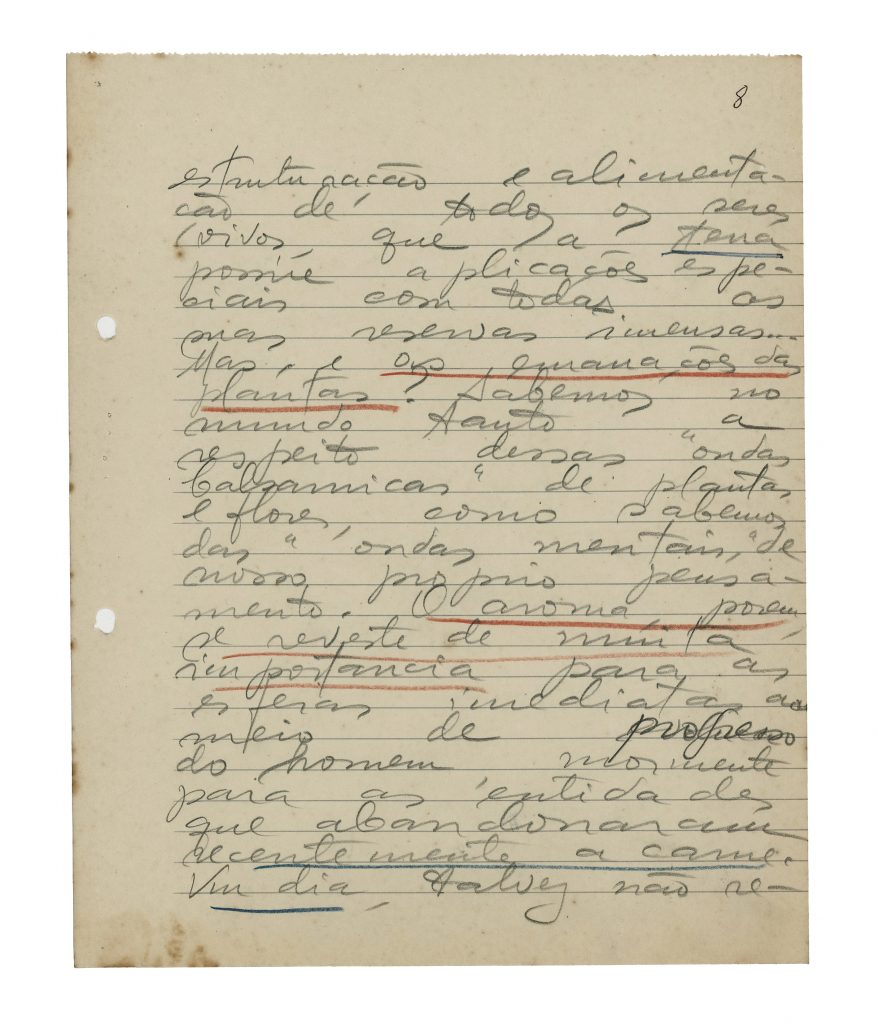 8
estruturação e alimenta-
ção de todos os seres
vivos que a terra
possúe aplicações espe-
ciais com todas as
suas reservas imensas...
Mas, e as emanações das
plantas? Sabemos no
mundo tanto a
respeito dessas "ondas
balsamicas" de plantas
e flores, como sabemos
das "ondas mentais," de
nosso proprio pensa-
mento. O aroma, porem,
se reveste de muita
importancia para as
esferas imediatas ao
meio de progresso
do homem mormente
para as entidades
que abandonaram
recentemente a carne.
Um dia, talvez não re-